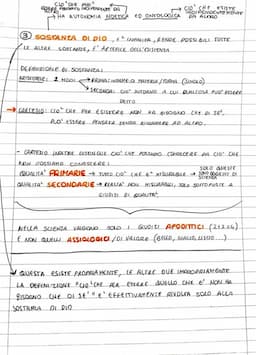 CIO' CHE PUO' ESSERE PENSATO INDIPENDENTEMENTE DA ALTRO
CIO' CHE ESISTE INDIPENDENTEMENTE DA ALTRO
HA AUTONOMIA NOETICA ED ONTOLOGICA
③ SOSTANZA DI DIO, E' UNIVOCA, RENDE POSSIBILI TUTTE
LE ALTRE SOSTANZE, E' ARTEFICE DELL'ESISTENZA
DEFINIZIONE DI SOSTANZA:
ARISTOTELE: 2 MODI → PRIMA: UNIONE DI MATERIA/FORMA (SINOLO)
→ SECONDA: CIO' INTORNO A CUI QUALCOSA PUO' ESSERE
DETTO
→ CARTESIO: CIO' CHE PER ESISTERE NON HA BISOGNO CHE DI SE',
PUO' ESSERE PENSATA SENZA RIMANDARE AD ALTRO.
- CARTESIO INOLTRE DISTINGUE CIO' CHE POSSIAMO CONOSCERE DA CIO' CHE
NON POSSIAMO CONOSCERE:
QUALITA' PRIMARIE → TUTTO CIO' CHE E' MISURABILE → SOLO QUESTE SONO OGGETTO DI SCIENZA
QUALITA' SECONDARIE → REALTA' NON MISURABILI, SOLO SOTTOPOSTE A
GIUDIZI DI QUALITA'
NELLA SCIENZA VALGONO SOLO I GIUDIZI APODITTICI (2+2=4)
E NON QUELLI ASSIOLOGICI/DI VALORE (BELLO, GIALLO, LISCIO...)
↓ QUESTA ESISTE PROPRIAMENTE, LE ALTRE DUE IMPROPRIAMENTE
LA DEFINIZIONE "CIO' CHE PER ESSERE QUELLO CHE E' NON HA
BISOGNO CHE DI SE'" E' EFFETTIVAMENTE RIVOLTA SOLO ALLA
SOSTANZA DI DIO